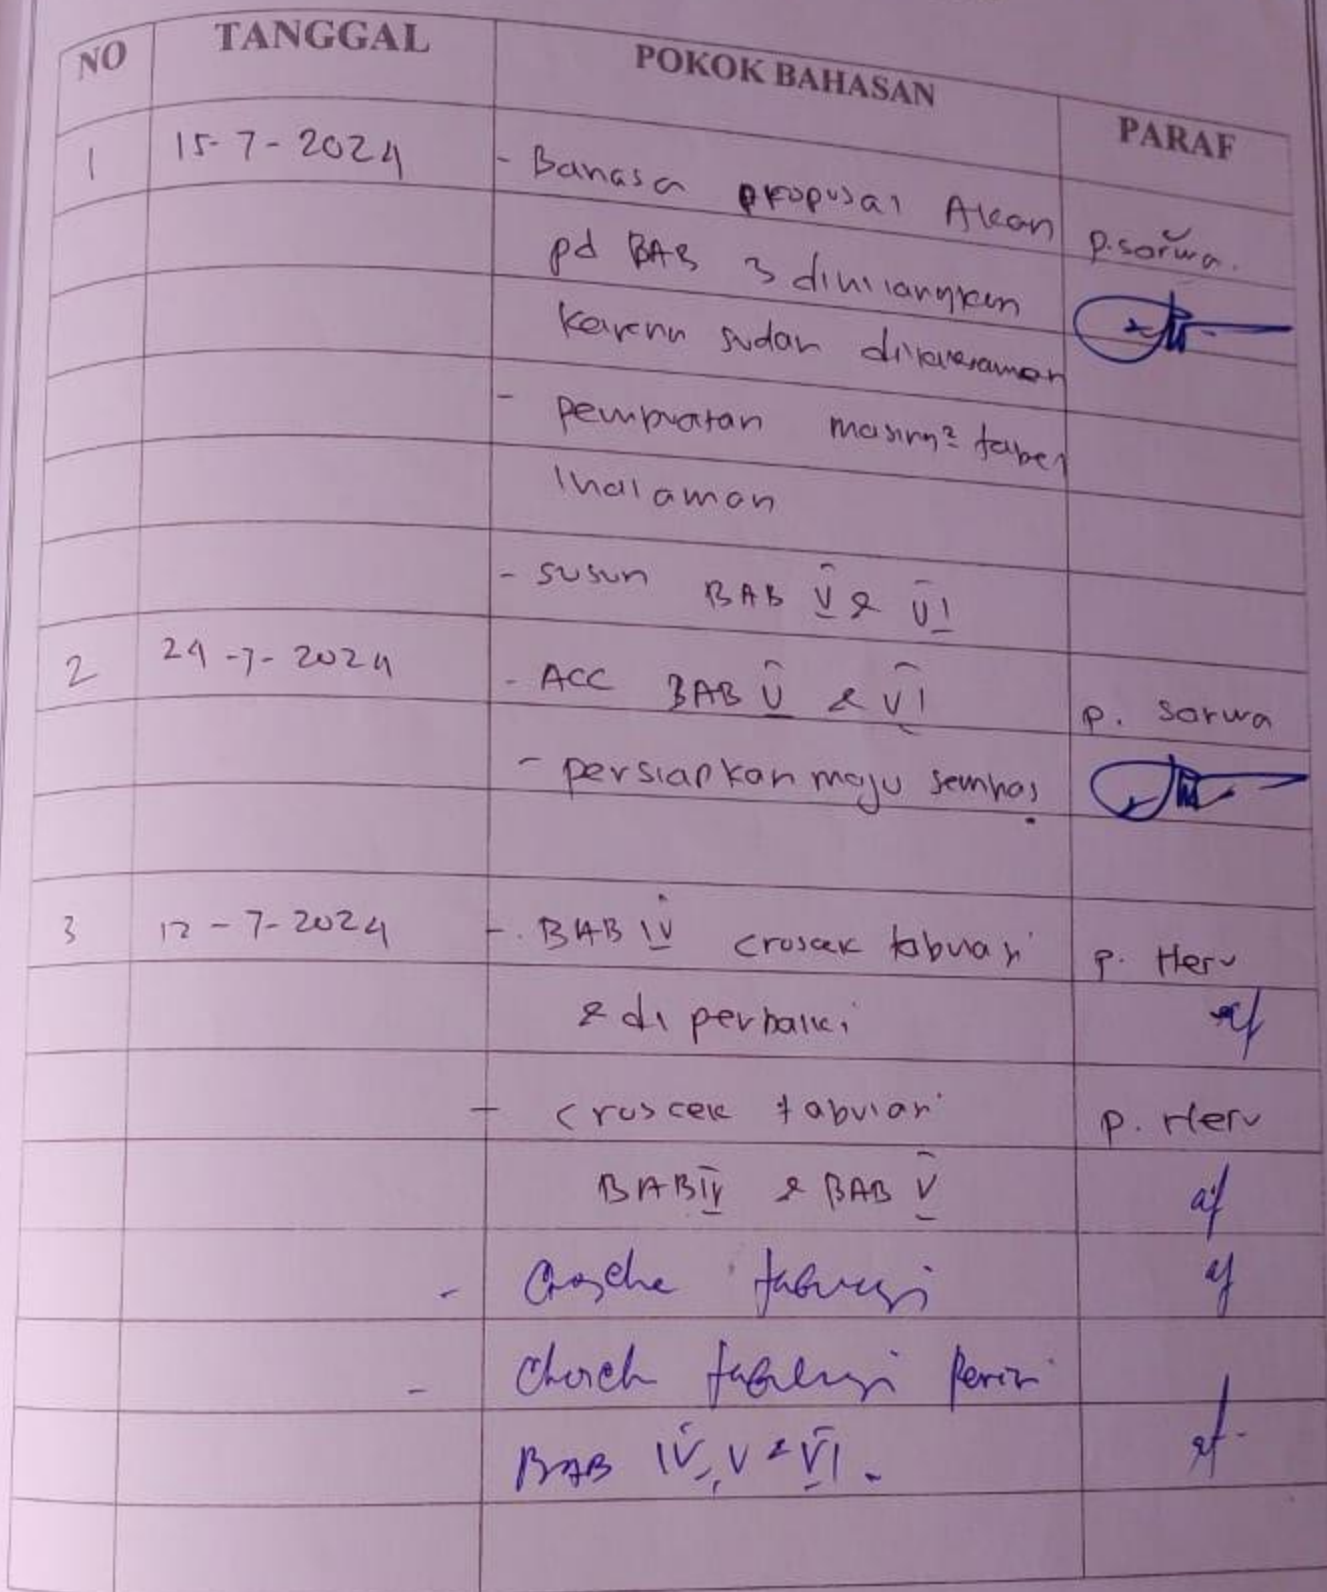 NO TANGGAL POKOK BAHASAN PARAF
1 15-7-2024 - Bahasa proposal Akan p. sarwa.
pd BAB 3 dihilangkan
karena sudah dilaksanakan
- pembuatan masing² tabel
1 halaman
- susun BAB V & VI
2 24-7-2024 - ACC BAB V & VI p. Sarwa
- persiapkan maju semhas
3 12-7-2024 - BAB IV croscek tabulasi p. Heru
& di perbaiki
- croscek tabulasi p. Heru
BAB IV & BAB V
- tabulasi
- tabulasi
BAB IV, V & VI.